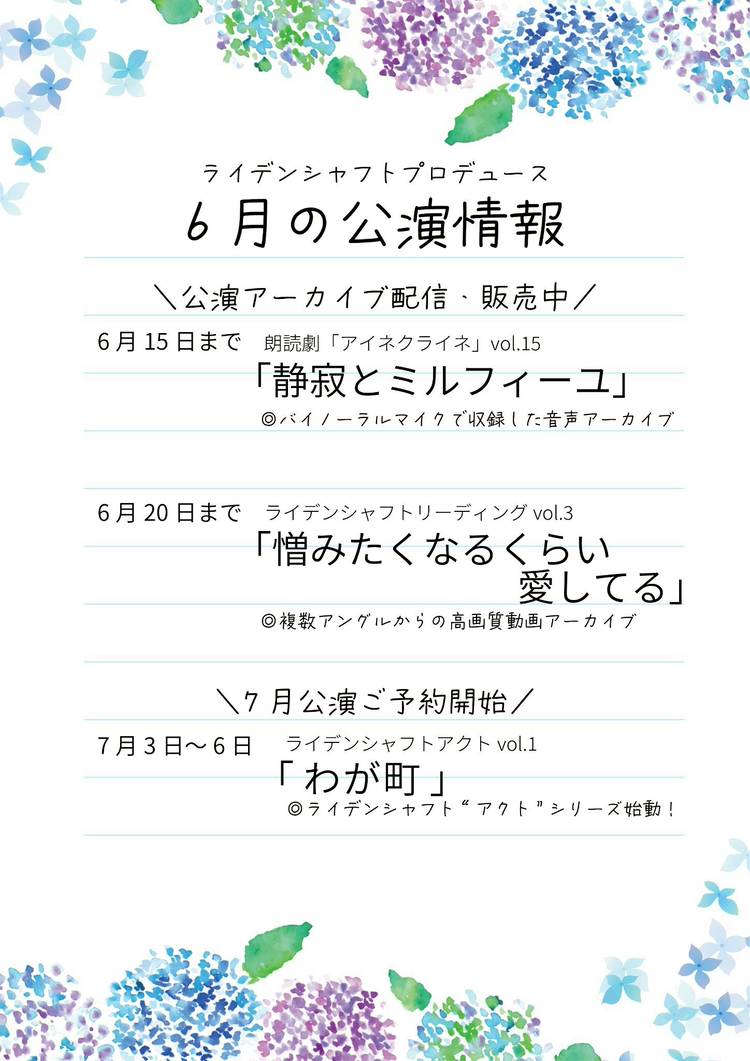 ライデンシャフトプロデュース
6月の公演情報
＼公演アーカイブ配信・販売中／
6月15日まで 朗読劇「アイネクライネ」vol.15
「静寂とミルフィーユ」
◎バイノーラルマイクで収録した音声アーカイブ
6月20日まで ライデンシャフトリーディング vol.3
「憎みたくなるくらい
愛してる」
◎複数アングルからの高画質動画アーカイブ
＼7月公演ご予約開始／
7月3日〜6日 ライデンシャフトアクト vol.1
「わが町」
◎ライデンシャフト“アクト”シリーズ始動！